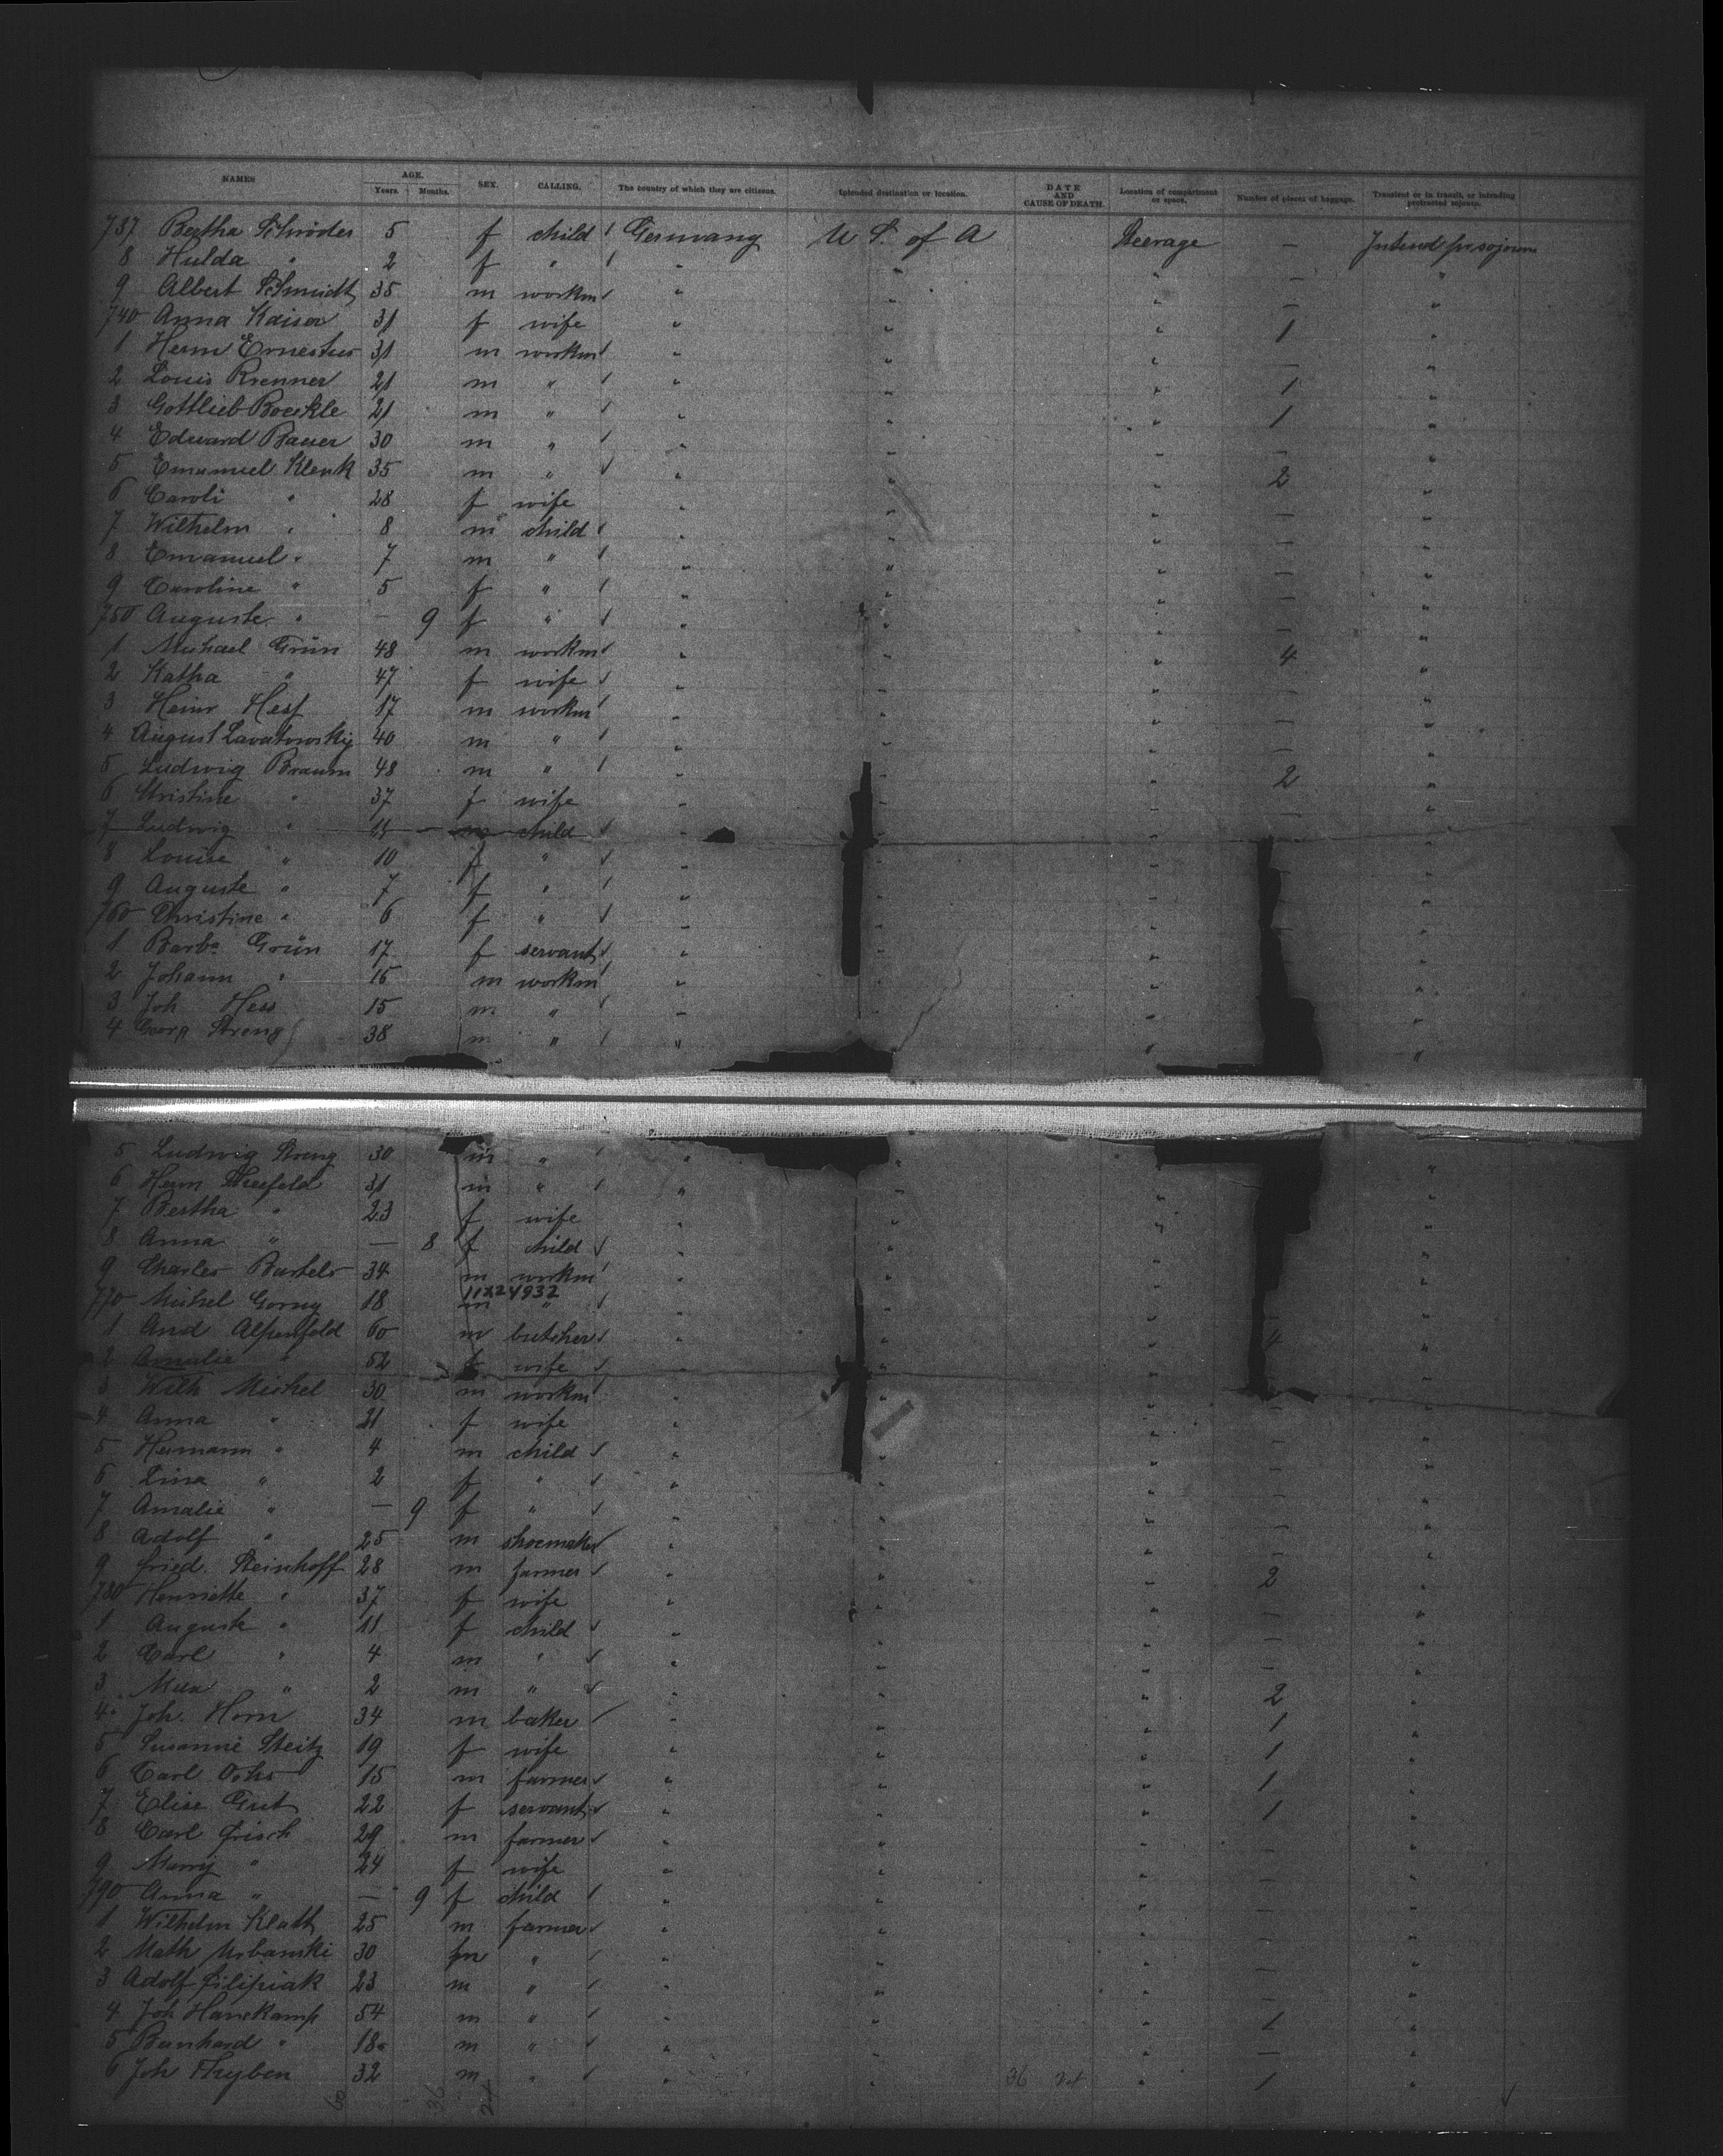 NAMES AGE. Years. Months. SEX. CALLING. The country of which they are citizens. Intended destination or location. DATE AND CAUSE OF DEATH. Location of compartment or space. Number of pieces of baggage. Transient or in transit, or intending protracted sojourn.
737 Bertha Schröder 5 f child / Germany U S. of A Steerage — Intend pr sojourn
8 Hulda " 2 f " / " " " — "
9 Albert Schmidt 35 m workm / " " " — "
740 Anna Kaiser 31 f wife " " " 1 "
1 Herm Ernestus 31 m workm / " " " — "
2 Louis Renner 21 m " / " " " 1 "
3 Gottlieb Boeckle 21 m " / " " " 1 "
4 Edward Bauer 30 m " / " " " — "
5 Emanuel Klenk 35 m " / " " " 2 "
6 Caroli " 28 f wife " " " — "
7 Wilhelm " 8 m child / " " " — "
8 Emanuel " 7 m " / " " " — "
9 Caroline " 5 f " / " " " — "
750 Auguste " — 9 f " / " " " — "
1 Michael Grün 48 m workm / " " " 4 "
2 Katha " 47 f wife / " " " — "
3 Heinr Hess 17 m workm / " " " — "
4 August Lavatowsky 40 m " / " " " — "
5 Ludwig Braun 48 m " / " " " 2 "
6 Christine " 37 f wife " " " — "
7 Ludwig " 11 — m child / " " " "
8 Louise " 10 f " / " " " "
9 Auguste " 7 f " / " " " "
760 Christine " 6 f " / " " " "
1 Barba Grün 17 f servant / " " " "
2 Johann " 16 m workm / " " " "
3 Joh Hess 15 m " / " " " "
4 Georg Streng 38 m " / " " "
5 Ludwig Streng 30 m " / " " "
6 Herm 31 m " / " " " "
7 Bertha " 23 f wife " " " "
8 Anna " — 8 f child / " " " "
9 Charles Bartels 34 m workm / " " "
11X24932
770 Michel Gorny 18 m " / " " " "
1 And Alpenfeld 60 m butcher / " " " 4 "
2 Amalie " 52 f wife / " " " "
3 Wilh Michel 30 m workm / " " " "
4 Anna " 21 f wife " " " — "
5 Hermann " 4 m child / " " " — "
6 Lina " 2 f " / " " " — "
7 Amalie " — 9 f " / " " " — "
8 Adolf " 25 m shoemaker / " " " — "
9 Fried. Steinhoff 28 m farmer / " " " 2 "
780 Henriette " 37 f wife " " " — "
1 Auguste " 11 f child / " " " — "
2 Carl " 4 m " / " " " — "
3 Max " 2 m " / " " " 2 "
4 Joh. Horn 34 m baker / " " " 1 "
5 Susanne Steitz 19 f wife " " " 1 "
6 Carl Ochs 15 m farmer / " " " 1 "
7 Elise Gut 22 f servant / " " " 1 "
8 Carl Frisch 29 m farmer / " " " — "
9 Marry " 24 f wife " " " — "
790 Anna " — 9 f child / " " " — "
1 Wilhelm Klatt 25 m farmer / " " " — "
2 Math Urbanski 30 m " / " " " — "
3 Adolf Filipiak 23 m " / " " " — "
4 Joh Hanekamp 54 m " / " " " 1 "
5 Bernhard " 18 m " / " " " — "
6 Joh 32 m " / " " 36 24 " 1 "
60 36 24